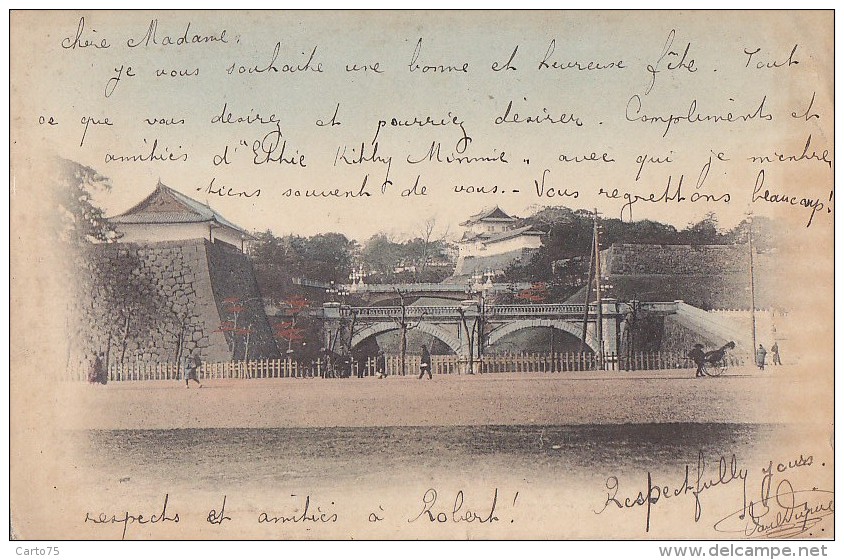 chère Madame,
je vous souhaite une bonne et heureuse fête. Tout
ce que vous desirez et pourriez désirer. Compliments et
amitiés d'"Ethie Kikby Minnie" avec qui je m'entre
tiens souvent de vous.- Vous regrettons beaucoup!
respects et amitiés à Robert!
Respectfully yours.
Carto75
www.delcampe.net